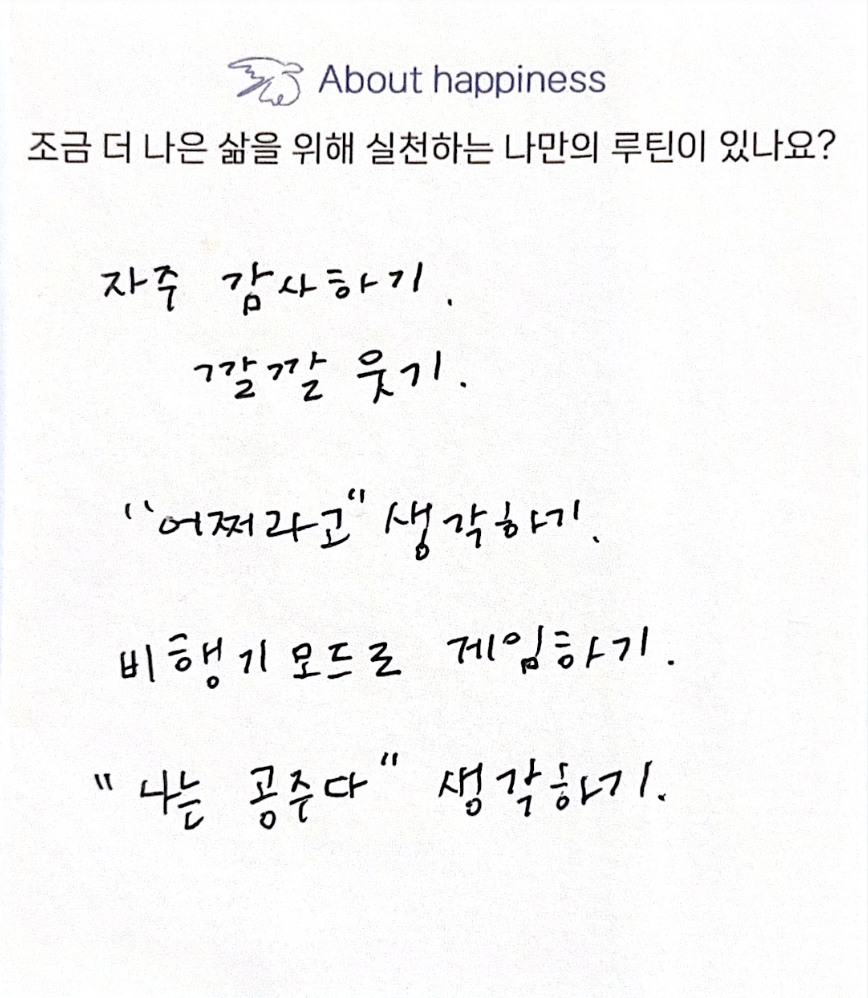 About happiness
조금 더 나은 삶을 위해 실천하는 나만의 루틴이 있나요?
자주 감사하기.
깔깔 웃기.
"어쩌라고" 생각하기.
비행기모드로 게임하기.
"나는 공주다" 생각하기.